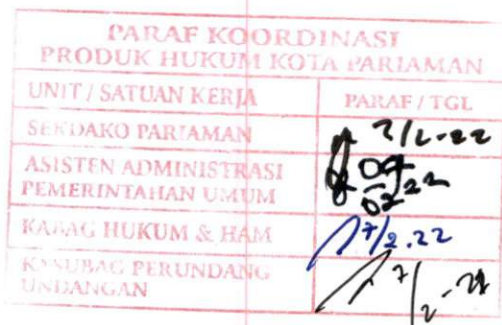 PARAF KOORDINASI
PRODUK HUKUM KOTA PARIAMAN
UNIT / SATUAN KERJA PARAF / TGL
SEKDAKO PARIAMAN 7/2-22
ASISTEN ADMINISTRASI
PEMERINTAHAN UMUM
KABAG HUKUM & HAM 7/2.22
KASUBAG PERUNDANG
UNDANGAN 7/2-22